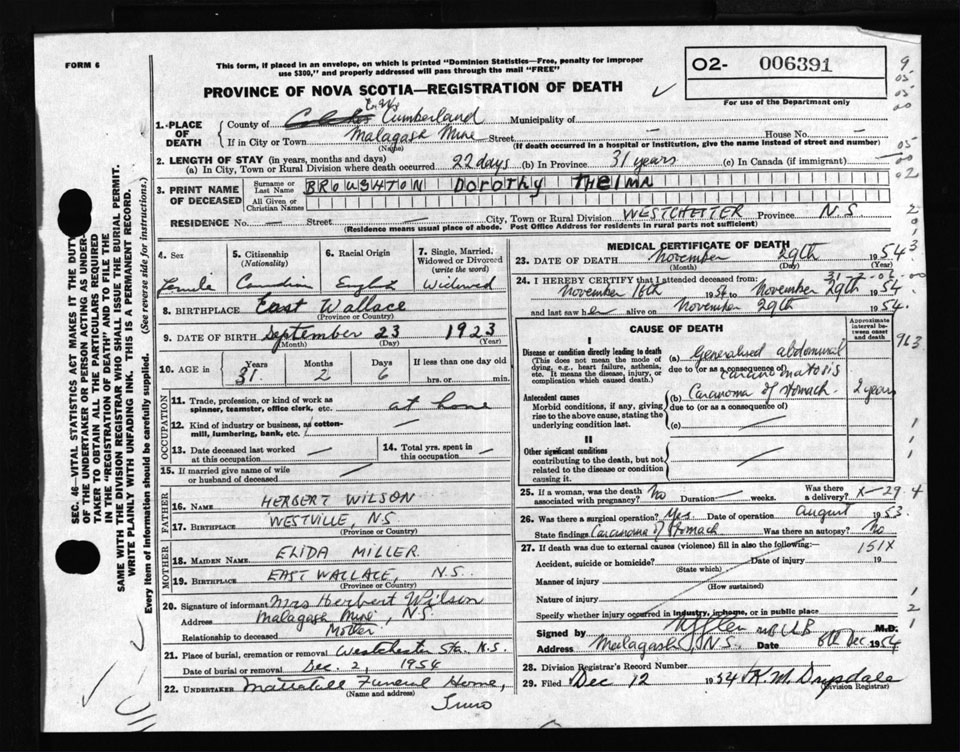 FORM 6
This form, if placed in an envelope, on which is printed "Dominion Statistics—Free, penalty for improper
use $300," and properly addressed will pass through the mail "FREE"
PROVINCE OF NOVA SCOTIA—REGISTRATION OF DEATH
O2- 006391
For use of the Department only
1. PLACE OF DEATH
County of Cumberland Municipality of —
If in City or Town Malagash Mine Street — House No. —
(Name) (If death occurred in a hospital or institution, give the name instead of street and number)
2. LENGTH OF STAY (in years, months and days)
(a) In City, Town or Rural Division where death occurred 22 days (b) In Province 31 years (c) In Canada (if immigrant) —
3. PRINT NAME OF DECEASED
Surname or Last Name BROUGHTON DOROTHY THELMA
All Given or Christian Names
RESIDENCE No. — Street — City, Town or Rural Division WESTCHESTER Province N.S.
(Residence means usual place of abode. Post Office Address for residents in rural parts not sufficient)
4. Sex Female
5. Citizenship (Nationality) Canadian
6. Racial Origin English
7. Single, Married, Widowed or Divorced (write the word) Widowed
8. BIRTHPLACE East Wallace
(Province or Country)
9. DATE OF BIRTH September 23 1923
(Month) (Day) (Year)
10. AGE in Years 31 Months 2 Days 6 If less than one day old
hrs. or min.
OCCUPATION
11. Trade, profession, or kind of work as
spinner, teamster, office clerk, etc. at home
12. Kind of industry or business, as cotton-
mill, lumbering, bank, etc. /
13. Date deceased last worked at this occupation —
14. Total yrs. spent in this occupation —
15. If married give name of wife
or husband of deceased —
FATHER
16. NAME HERBERT WILSON
17. BIRTHPLACE WESTVILLE, N.S
(Province or Country)
MOTHER
18. MAIDEN NAME ELIDA MILLER
19. BIRTHPLACE EAST WALLACE, N.S.
(Province or Country)
20. Signature of informant Mrs Herbert Wilson
Address Malagash Mine, N.S.
Relationship to deceased Mother
21. Place of burial, cremation or removal Westchester Sta. N.S.
Date of burial or removal Dec. 2, 1954
22. UNDERTAKER Mattatall Funeral Home,
(Name and address)
Truro
MEDICAL CERTIFICATE OF DEATH
23. DATE OF DEATH November 29th 1954
(Month) (Day) (Year)
24. I HEREBY CERTIFY that I attended deceased from:
November 16th 1954 to November 29th 1954
and last saw her alive on November 29th 1954.
CAUSE OF DEATH
Approximate interval between onset and death
I
Disease or condition directly leading to death
(This does not mean, the mode of dying, e.g., heart failure, asthenia, etc. It means the disease, injury, or complication which caused death.)
(a) Generalised abdominal
due to (or as a consequence of) carcinomatosis
Antecedent causes
Morbid conditions, if any, giving rise to the above cause, stating the underlying condition last.
(b) Carcinoma of stomach 2 years
due to (or as a consequence of)
(c) —
II
Other significant conditions
contributing to the death, but not related to the disease or condition causing it.
25. If a woman, was the death associated with pregnancy? No Duration — weeks. Was there a delivery? X-29.4
26. Was there a surgical operation? Yes. Date of operation August 1953.
State findings Carcinoma of Stomach Was there an autopsy? No
27. If death was due to external causes (violence) fill in also the following:— 151X
Accident, suicide or homicide? Date of injury 19
(State which)
Manner of injury
(How sustained)
Nature of injury
Specify whether injury occurred in industry, in home, or in public place
Signed by M.D.
Address Malagash, N.S. Date 8th Dec 1954
28. Division Registrar's Record Number
29. Filed Dec 12 1954 K. M. Drysdale
(Division Registrar)
SEC. 46—VITAL STATISTICS ACT MAKES IT THE DUTY
OF THE UNDERTAKER OR PERSON ACTING AS UNDER-
TAKER TO OBTAIN ALL THE PARTICULARS REQUIRED
IN THE "REGISTRATION OF DEATH" AND TO FILE THE
SAME WITH THE DIVISION REGISTRAR WHO SHALL ISSUE THE BURIAL PERMIT.
WRITE PLAINLY WITH UNFADING INK. THIS IS A PERMANENT RECORD.
Every item of information should be carefully supplied. (See reverse side for instructions.)